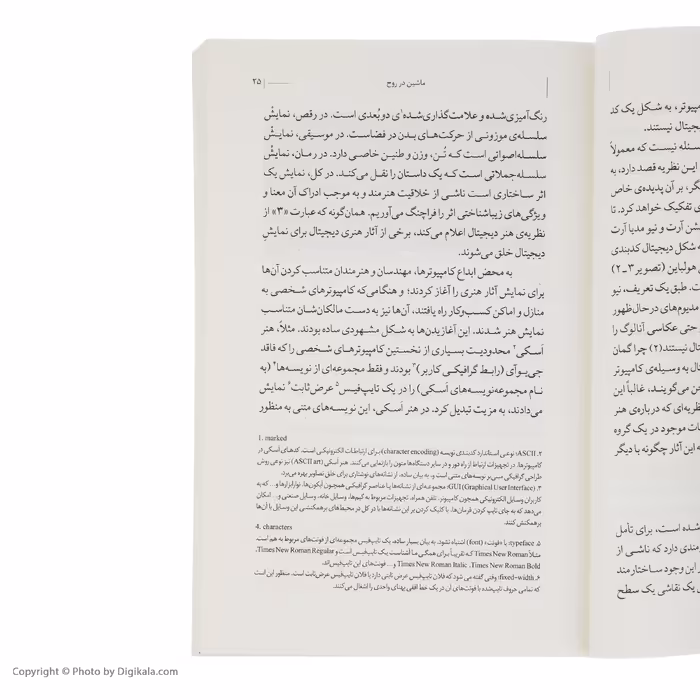 ماشین در روح
۲۵
رنگ‌آمیزی‌شده و علامت‌گذاری‌شده‌ٔ۱ی دوبُعدی است. در رقص، نمایشْ
سلسله‌ی موزونی از حرکت‌های بدن در فضاست. در موسیقی، نمایشْ
سلسله‌اصواتی است که تُن، وزن و طنین خاصی دارد. در رمان، نمایشْ
سلسله‌جملاتی است که یک داستان را نقل می‌کند. در کل، نمایش یک
اثر ساختاری است ناشی از خلاقیت هنرمند و به موجب ادراک آن معنا و
ویژگی‌های زیباشناختی اثر را فراچنگ می‌آوریم. همان‌گونه که عبارت «۳» از
نظریه‌ی هنر دیجیتال اعلام می‌کند، برخی از آثار هنری دیجیتال برای نمایشِ
دیجیتال خلق می‌شوند.
به محض ابداع کامپیوترها، مهندسان و هنرمندان متناسب کردن آن‌ها
برای نمایش آثار هنری را آغاز کردند؛ و هنگامی‌که کامپیوترهای شخصی به
منازل و اماکن کسب‌وکار راه یافتند، آن‌ها نیز به دست مالکان‌شان متناسب
نمایش هنر شدند. این آغازیدن‌ها به شکل مشهودی ساده بودند. مثلاً، هنر
اَسکی۲ محدودیت بسیاری از نخستین کامپیوترهای شخصی را که فاقد
جی‌یوآی (رابط گرافیکی کاربر)۳ بودند و فقط مجموعه‌ای از نویسه‌ها۴ (به
نام مجموعه‌نویسه‌های اَسکی) را در یک تایپ‌فیس۵ عرض‌ثابت۶ نمایش
می‌دادند، به مزیت تبدیل کرد. در هنر اَسکی، این نویسه‌های متنی به منظور
1. marked
۲. ASCII؛ نوعی استاندارد کدبندی نویسه (character encoding) برای ارتباطات الکترونیکی است. کدهای اَسکی در
کامپیوترها، در تجهیزات ارتباط از راه دور و در سایر دستگاه‌ها متون را بازنمایی می‌کنند. هنر اَسکی (ASCII art) نیز نوعی روش
طراحی گرافیکی مبنی بر نویسه‌های متنی است و، به بیان ساده، از نشانه‌های نوشتاری برای خلق تصاویر بهره می‌برد.
۳. GUI (Graphical User Interface)؛ مجموعه‌ای از نشانه‌ها یا عناصر گرافیکی همچون آیکون‌ها، نوارابزارها و... که به
کاربران وسایل الکترونیکی همچون کامپیوتر، تلفن همراه، تجهیزات مربوط به گیم‌ها، وسایل خانه، وسایل صنعتی و... امکان
می‌دهد که به جای تایپ کردن فرمان‌ها، با کلیک کردن بر این نشانه‌ها یا در کل در محیط‌های برهمکنشی این وسایل با آن‌ها
برهمکنش کنند.
4. characters
۵. typeface؛ با «فونت» (font) اشتباه نشود. به بیان بسیار ساده، یک تایپ‌فیس مجموعه‌ای از فونت‌های مربوط به هم است.
مثلاً Times New Roman که تقریباً برای همگی ما آشناست یک تایپ‌فیس است و Times New Roman Regular،
Times New Roman Bold، Times New Roman Italic و... فونت‌های این تایپ‌فیس‌اند.
۶. fixed-width؛ وقتی گفته می شود که فلان تایپ‌فیس عرض ثابتی دارد یا فلان تایپ‌فیس عرض‌ثابت است، منظور این است
که تمامی حروف تایپ‌شده با فونت‌های آن در یک خط افقی پهنای واحدی را اشغال می‌کنند.
مپیوتر، به شکل یک کد
جیتال نیستند.
سئله نیست که معمولاً
این نظریه قصد دارد، به
گر، بر آن پدیده‌ی خاص
ی تفکیک خواهد کرد. تا
شن آرت و نیو مدیا آرت
ه شکل دیجیتال کدبندی
هولباین (تصویر ۳ـ۲)
ت. طبق یک تعریف، نیو
مدیوم‌های درحال‌ظهور
حتی عکاسی آنالوگ را
تال نیستند(۲) چرا گمان
ال به وسیله‌ی کامپیوتر
من می‌گویند، غالباً این
ظریه‌ای که درباره‌ی هنر
ات موجود در یک گروه
ه این آثار چگونه با دیگر
شده است، برای تأمل
مندی دارد که ناشی از
ر این وجود ساختارمند
ی یک نقاشی یک سطح
Copyright © Photo by Digikala.com